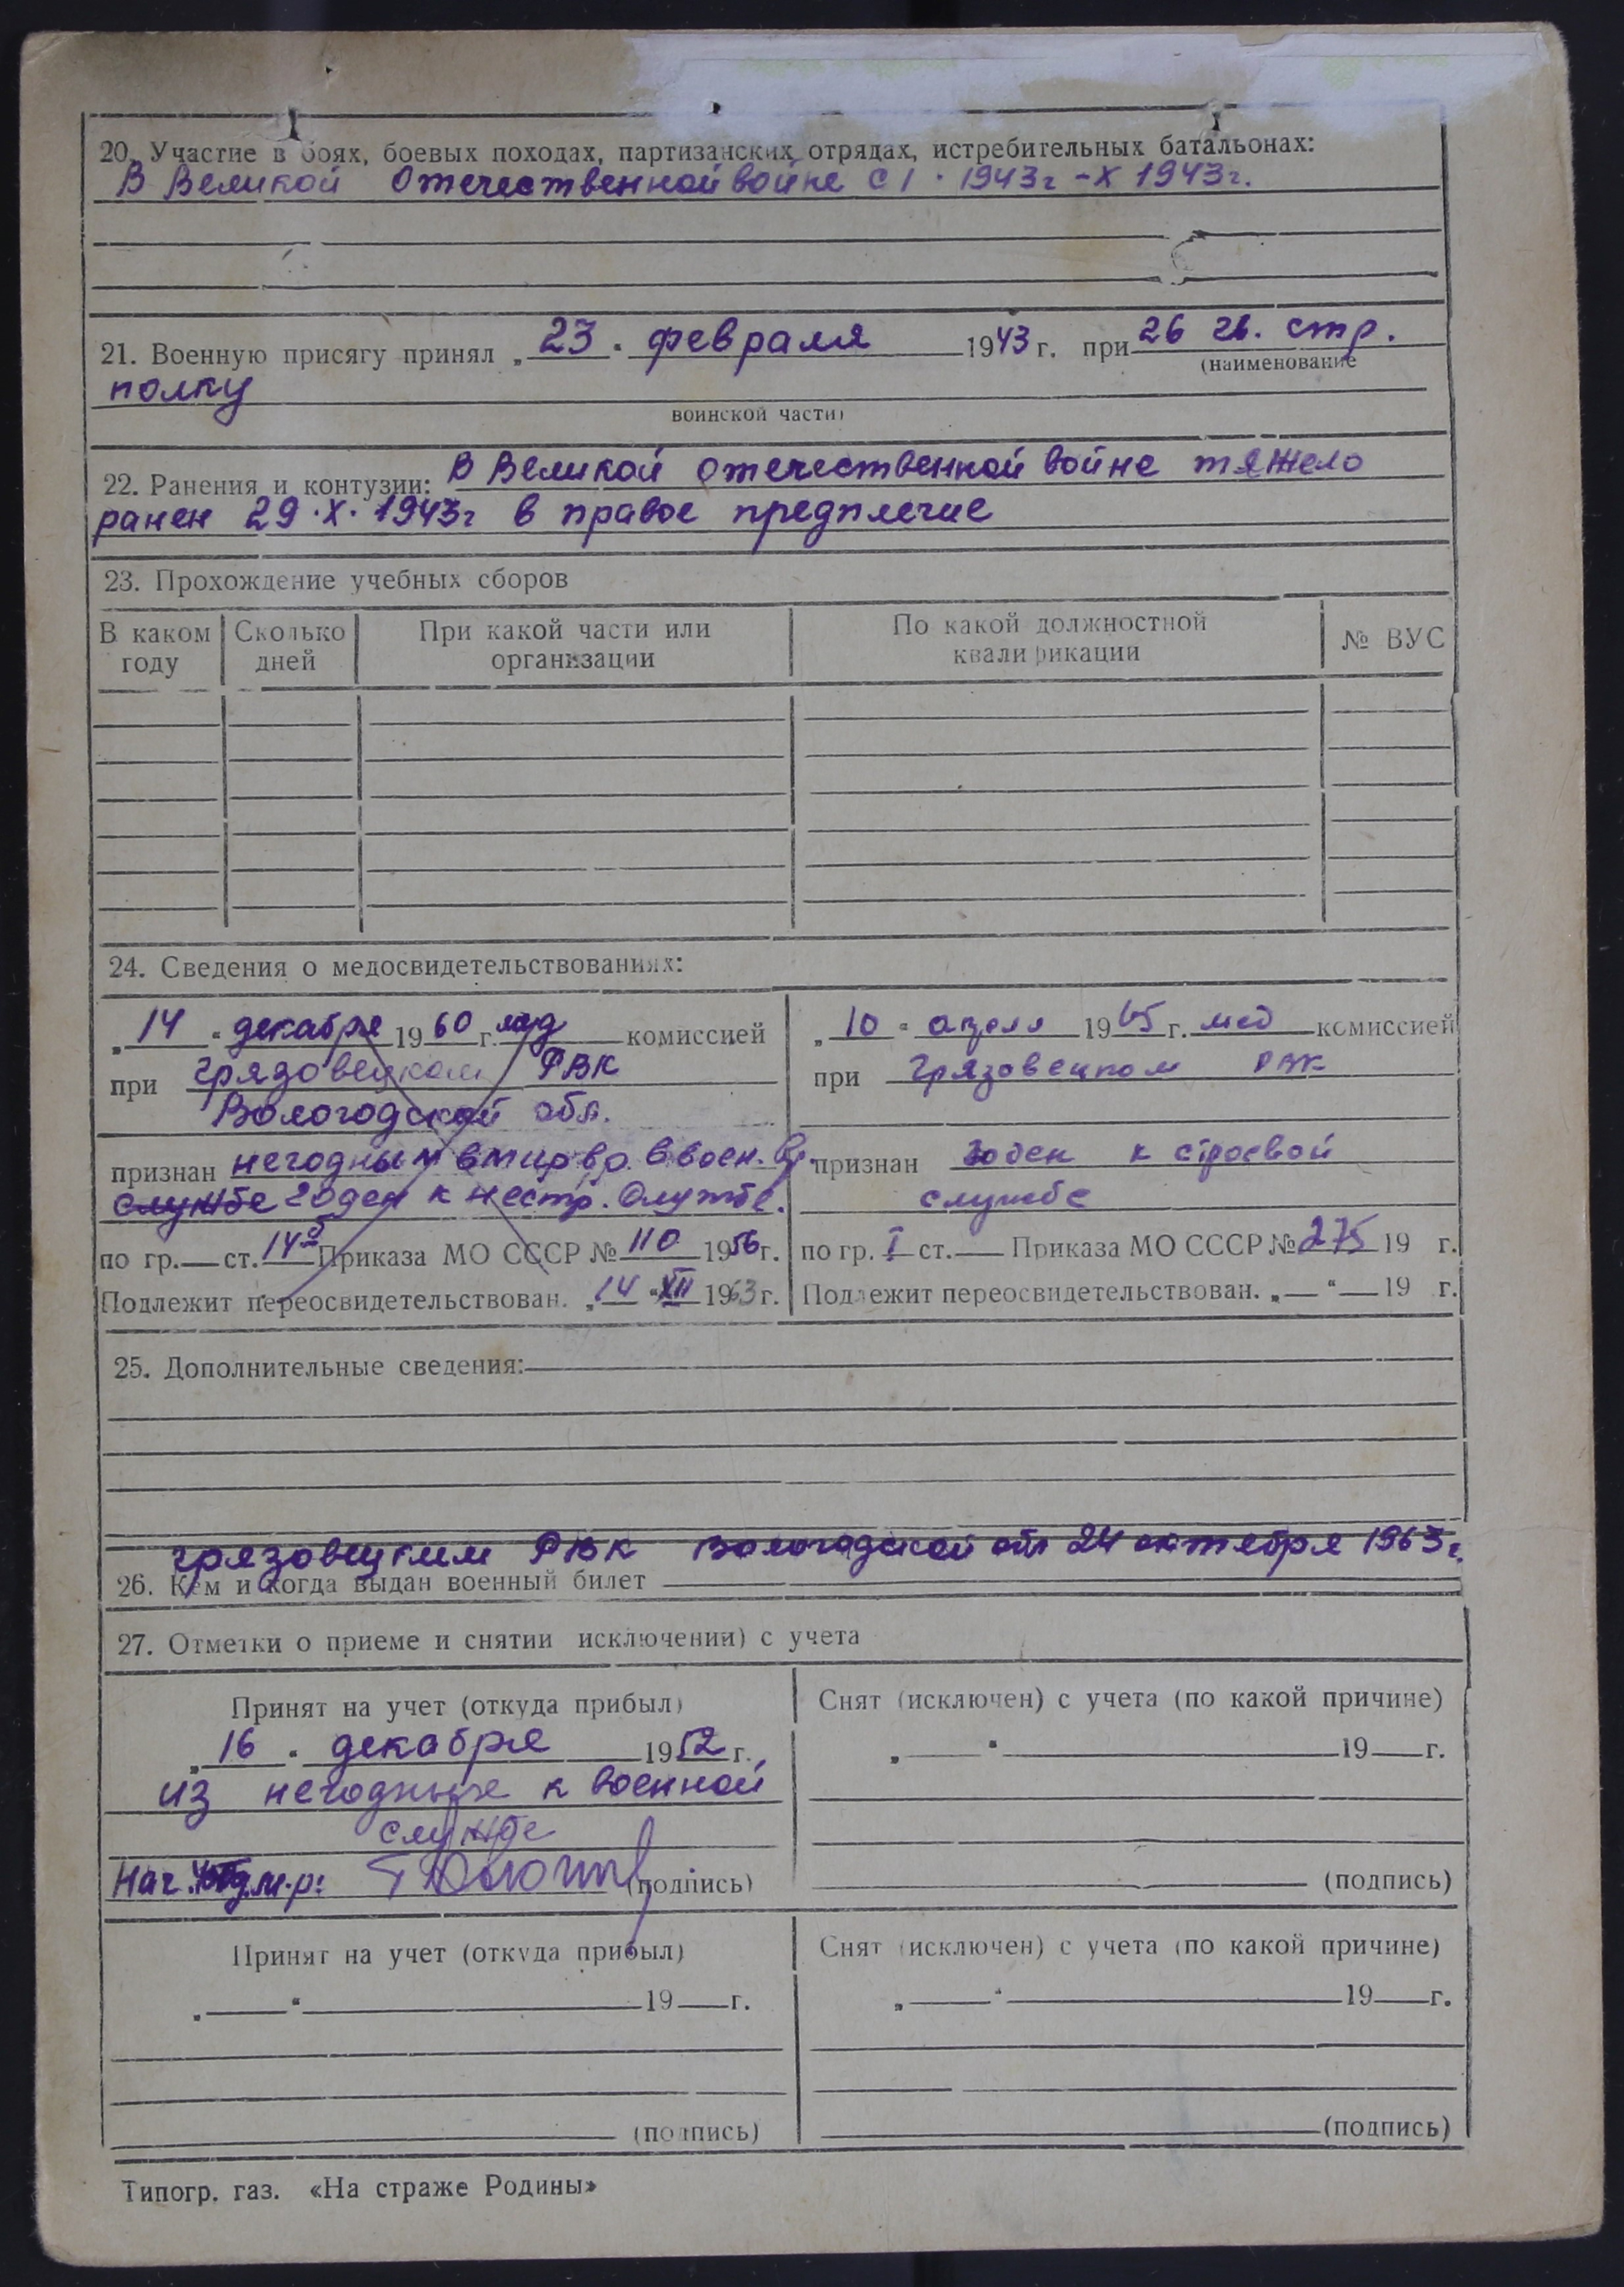 20. Участие в боях, боевых походах, партизанских отрядах, истребительных батальонах:
В Великой Отечественной войне с I. 1943г - X 1943г.
21. Военную присягу принял „ 23 " февраля 1943 г. при 26 гв. стр.
(наименование
полку
воинской части)
22. Ранения и контузии: В Великой отечественной войне тяжело
ранен 29.X.1943г в правое предплечие
23. Прохождение учебных сборов
В каком году Сколько дней При какой части или организации По какой должностной квалификации № ВУС
24. Сведения о медосвидетельствованиях:
„ 14 " декабря 1960 г. мед комиссией
при Грязовецком РВК
Вологодской обл.
признан негодным в мир. вр. в воен. вр.
службе годен к нестр. службе.
по гр. — ст. 14б Приказа МО СССР № 110 1956 г.
Подлежит переосвидетельствован. „ 14 " XII 1963 г.
„ 10 " апреля 1965 г. мед комиссией
при Грязовецком РВК
признан годен к строевой
службе
по гр. I ст. — Приказа МО СССР № 275 19 г.
Подлежит переосвидетельствован. „ — " — 19 г.
25. Дополнительные сведения:
Грязовецким РВК Вологодской обл 24 октября 1963 г.
26. Кем и когда выдан военный билет
27. Отметки о приеме и снятии исключении) с учета
Принят на учет (откуда прибыл)
„ 16 " декабря 1952 г.
из негодных к военной
службе
Нач. (подпись)
Снят (исключен) с учета (по какой причине)
„ — " — 19 — г.
(подпись)
Принят на учет (откуда прибыл)
„ — " — 19 — г.
(подпись)
Снят (исключен) с учета (по какой причине)
„ — " — 19 — г.
(подпись)
Типогр. газ. «На страже Родины»